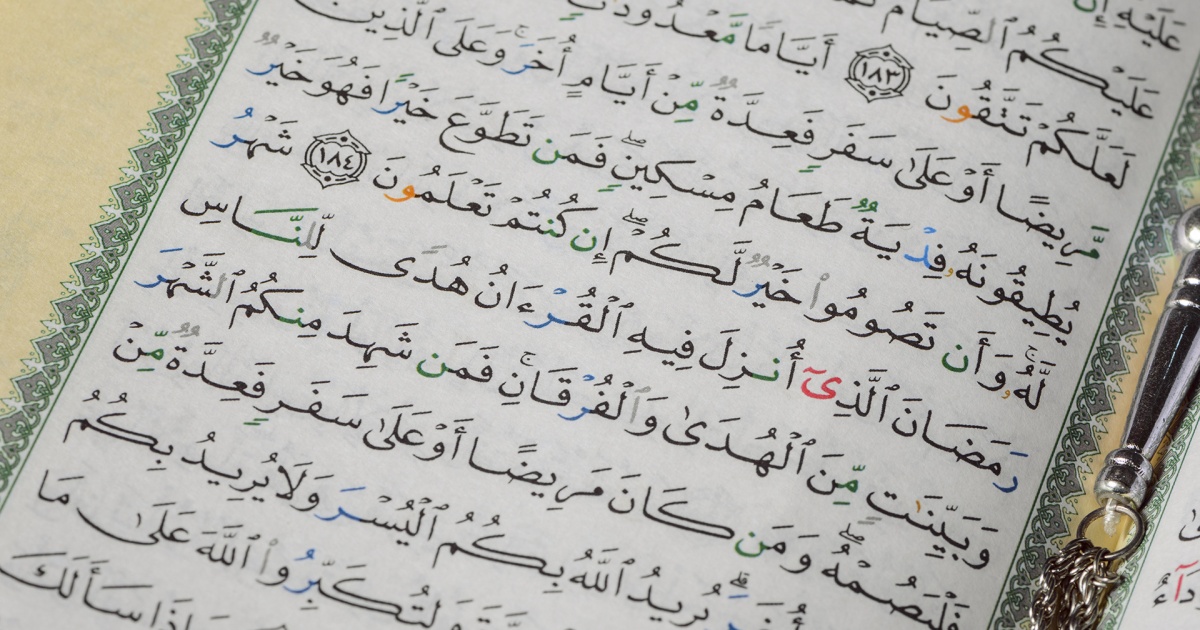 عَلَيْهِ إِنَّ
عَلَيْكُمُ ٱلصِّيَامُ
لَعَلَّكُمْ تَتَّقُونَ ١٨٣ أَيَّامًا مَّعْدُودَٰتٍ
مَّرِيضًا أَوْ عَلَىٰ سَفَرٍ فَعِدَّةٌ مِّنْ أَيَّامٍ أُخَرَۚ وَعَلَى ٱلَّذِينَ
يُطِيقُونَهُۥ فِدْيَةٌ طَعَامُ مِسْكِينٍۖ فَمَن تَطَوَّعَ خَيْرًا فَهُوَ خَيْرٌ
لَّهُۥۚ وَأَن تَصُومُوا۟ خَيْرٌ لَّكُمْۖ إِن كُنتُمْ تَعْلَمُونَ ١٨٤ شَهْرُ
رَمَضَانَ ٱلَّذِىٓ أُنزِلَ فِيهِ ٱلْقُرْءَانُ هُدًى لِّلنَّاسِ
وَبَيِّنَٰتٍ مِّنَ ٱلْهُدَىٰ وَٱلْفُرْقَانِۚ فَمَن شَهِدَ مِنكُمُ ٱلشَّهْرَ
فَلْيَصُمْهُۖ وَمَن كَانَ مَرِيضًا أَوْ عَلَىٰ سَفَرٍ فَعِدَّةٌ مِّنْ
أُخَرَۗ يُرِيدُ ٱللَّهُ بِكُمُ ٱلْيُسْرَ وَلَا يُرِيدُ بِكُمُ
لِتُكَبِّرُوا۟ ٱللَّهَ عَلَىٰ مَا
إِذَا سَأَلَكَ